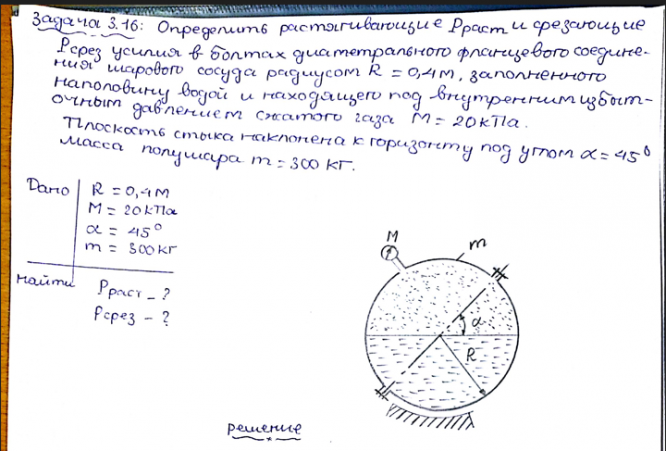 Задача 3.16: Определить растягивающие Pраст и срезающие
Pсрез усилия в болтах диаметрального фланцевого соедине-
ния шарового сосуда радиусом R = 0,4м, заполненного
наполовину водой и находящего под внутренним избыт-
очным давлением сжатого газа M = 20 кПа.
Плоскость стыка наклонена к горизонту под углом α = 45°
Масса полушара m = 300 кг.
Дано
R = 0,4 м
M = 20 кПа
α = 45°
m = 300 кг
Найти
Pраст - ?
Pсрез - ?
M
m
α
R
решение